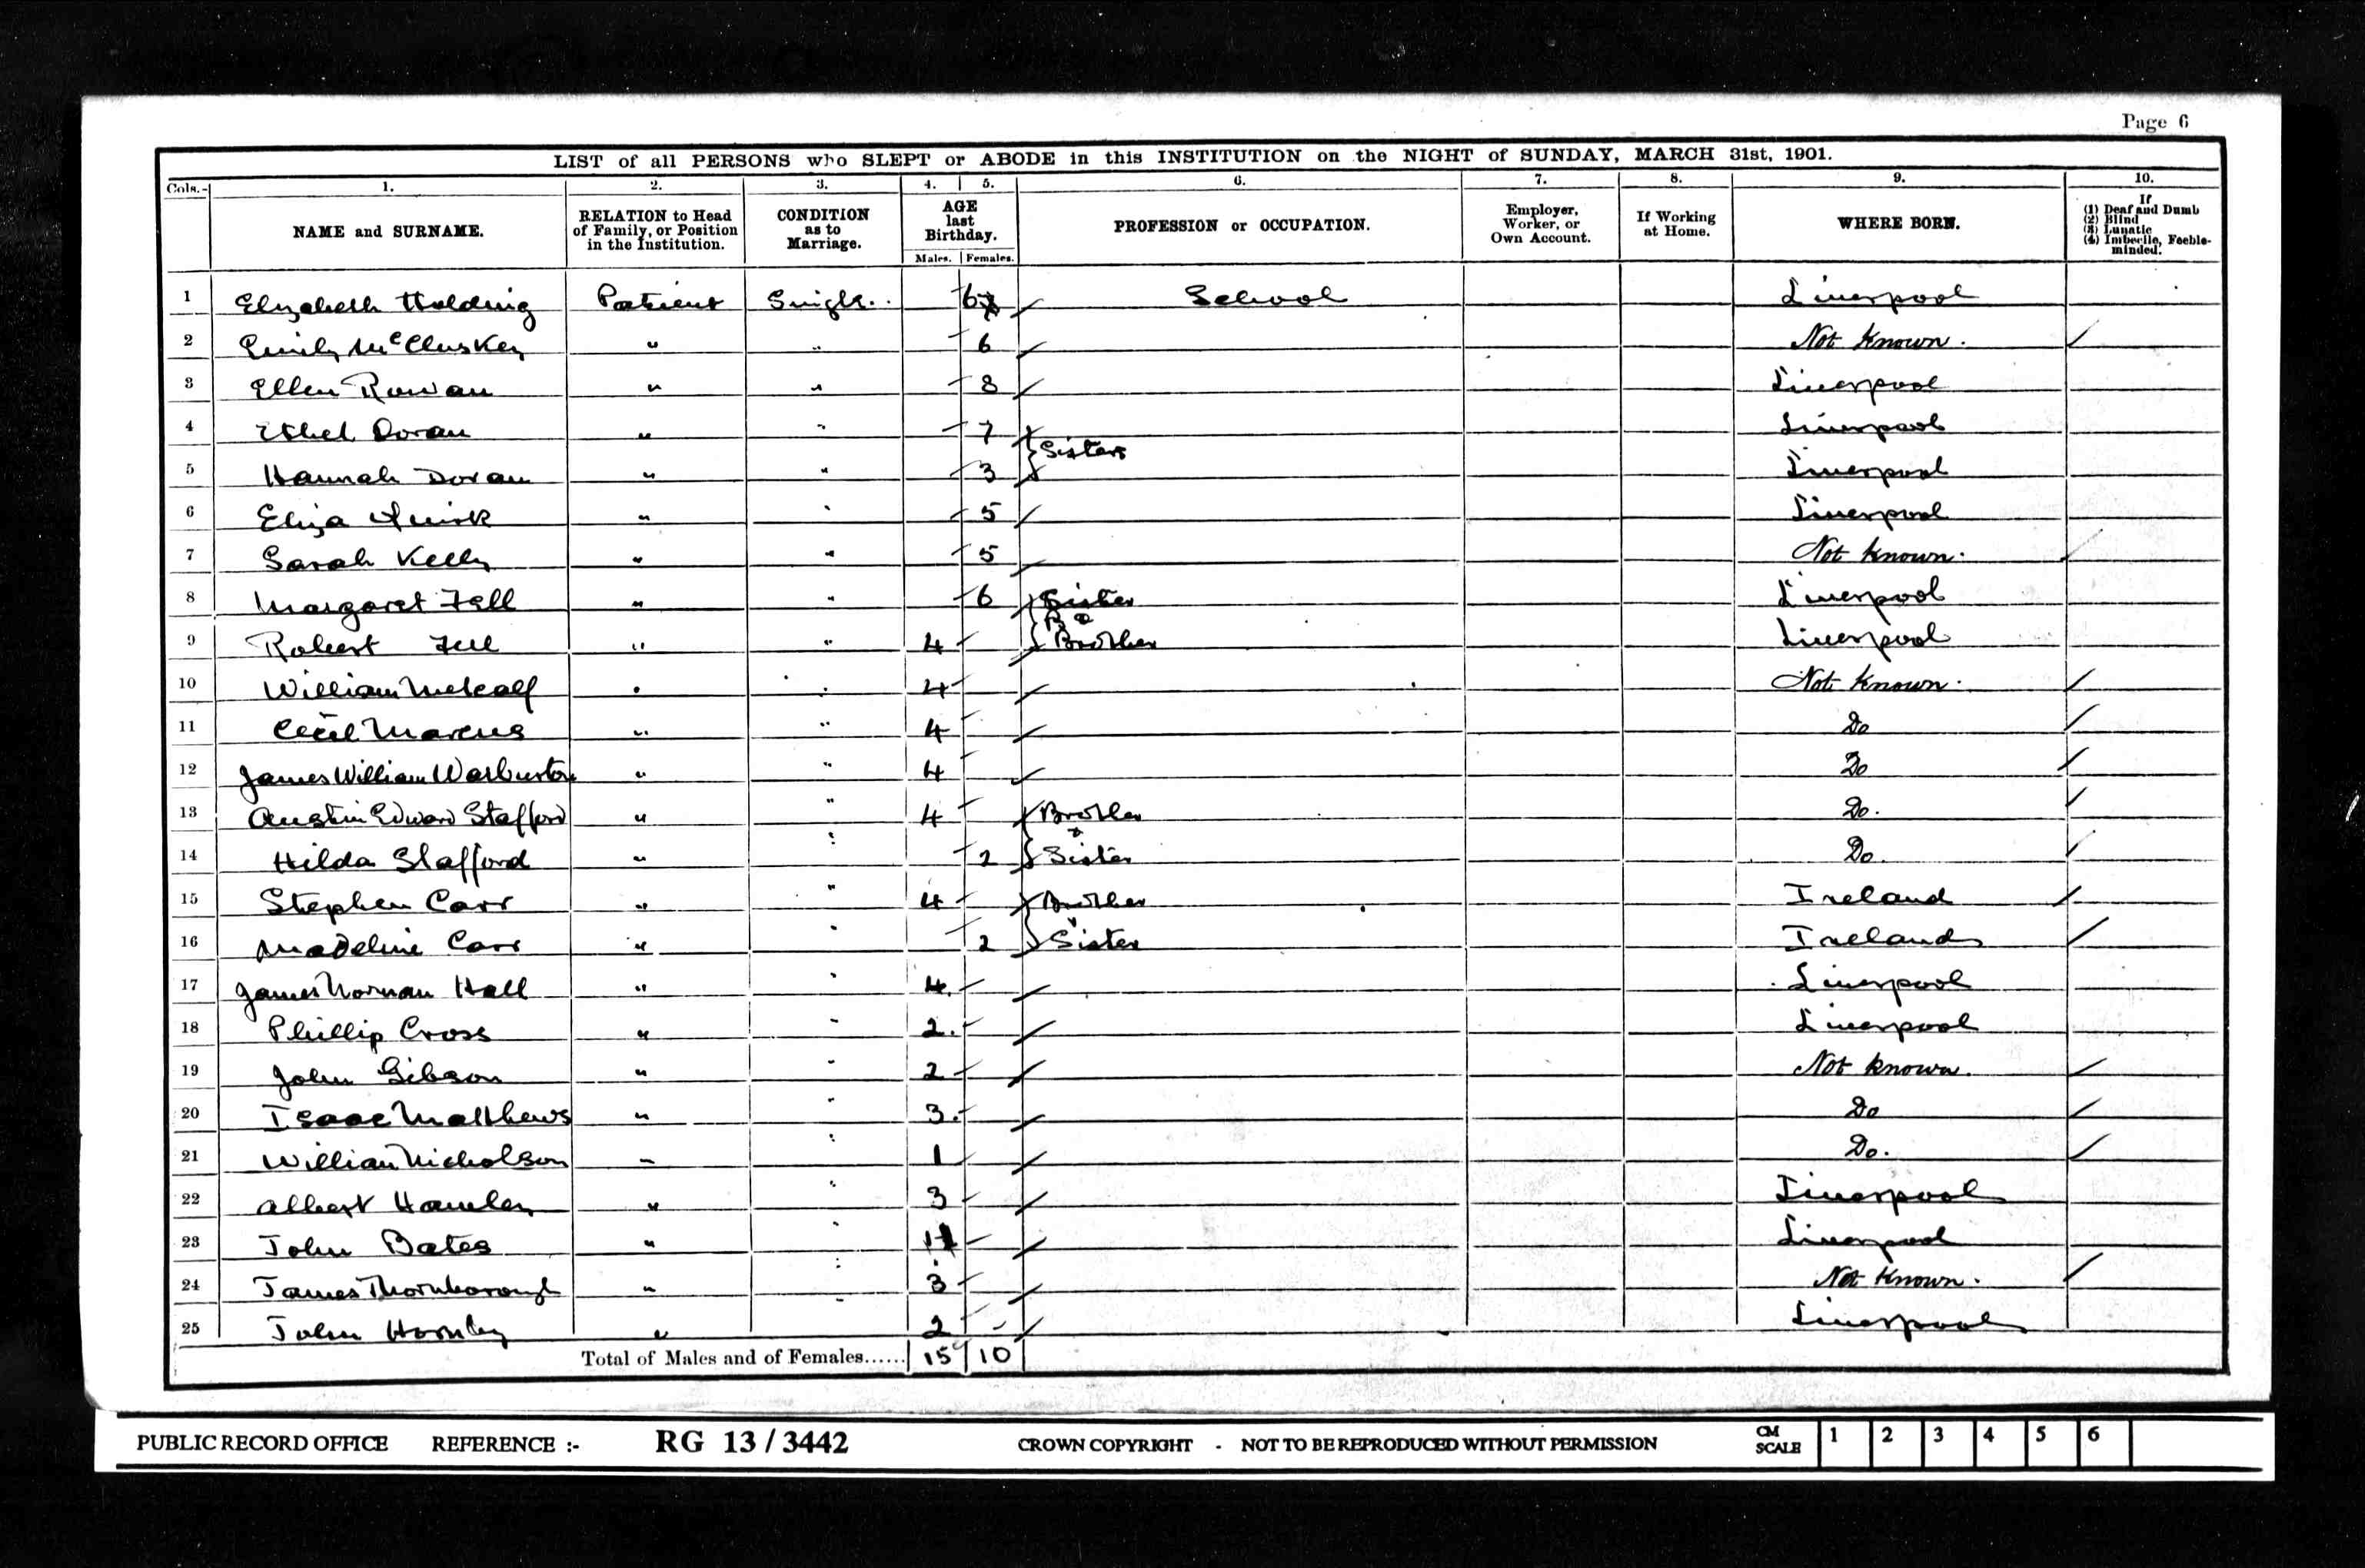 Page 6
LIST of all PERSONS who SLEPT or ABODE in this INSTITUTION on the NIGHT of SUNDAY, MARCH 31st, 1901.
Cols.- 1. 2. 3. 4. 5. 6. 7. 8. 9. 10.
NAME and SURNAME. RELATION to Head of Family, or Position in the Institution. CONDITION as to Marriage. AGE last Birthday. Males. Females. PROFESSION or OCCUPATION. Employer, Worker, or Own Account. If Working at Home. WHERE BORN. If (1) Deaf and Dumb (2) Blind (3) Lunatic (4) Imbecile, Feeble-minded.
1 Elizabeth Holding Patient Single. 6 School Liverpool
2 Emily McCluskey " " 6 Not Known.
3 Ellen Rowan " " 8 Liverpool
4 Ethel Doran " " 7 Sisters Liverpool
5 Hannah Doran " " 3 Liverpool
6 Eliza Quirk " " 5 Liverpool
7 Sarah Kelly " " 5 Not Known.
8 Margaret Fell " " 6 Sister Liverpool
&
9 Robert Fell " " 4 Brother Liverpool
10 William Metcalf " " 4 Not Known.
11 Cecil Marcus " " 4 Do
12 James William Warburton " " 4 Do
13 Austin Edward Stafford " " 4 Brother Do.
&
14 Hilda Stafford " " 2 Sister Do.
15 Stephen Carr " " 4 Brother Ireland
&
16 Madeline Carr " " 2 Sister Ireland
17 James Norman Hall " " 4 Liverpool
18 Phillip Cross " " 2 Liverpool
19 John Gibson " " 2 Not Known.
20 Isaac Matthews " " 3 Do
21 William Nicholson " " 1 Do.
22 Albert " " 3 Liverpool
23 John Bates " " Liverpool
24 James Thornborough " " 3 Not Known.
25 John Hornby " 2 Liverpool
Total of Males and of Females...... 15 10
PUBLIC RECORD OFFICE REFERENCE :- RG 13 / 3442 CROWN COPYRIGHT - NOT TO BE REPRODUCED WITHOUT PERMISSION CM SCALE 1 2 3 4 5 6